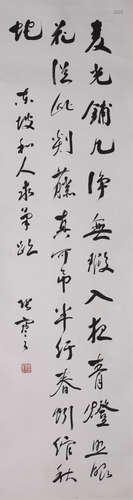 麦光铺几净无瑕入夜青灯照眼
花从此剡藤真可吊半行春蚓绾秋
蛇
东坡和人求笔迹